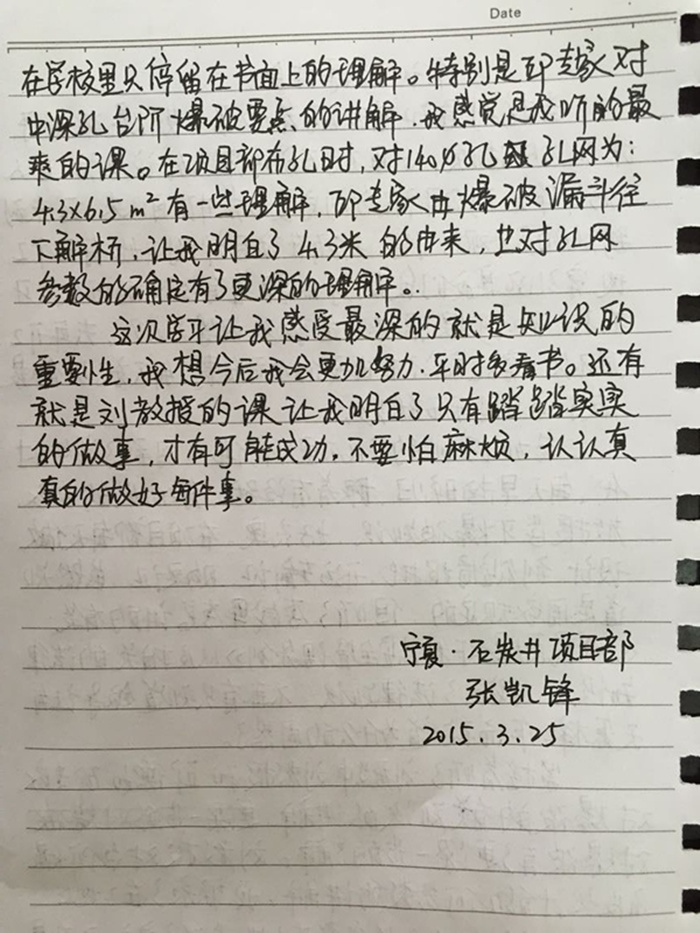 Date
在学校里只停留在书面上的理解。特别是邵专家对
中深孔台阶爆破要点的讲解,我感觉是我听的最
爽的课。在项目部布孔时,对140∅孔 孔网为:
4.3×6.5 m² 有一些理解,邵专家由爆破漏斗往
下解析,让我明白了 4.3米 的由来,也对孔网
参数的确定有了更深的理解。
这次学习让我感受最深的就是知识的
重要性,我想今后我会更加努力,平时多看书。还有
就是刘教授的课让我明白了只有踏踏实实
的做事,才有可能成功,不要怕麻烦,认认真
真的做好每件事。
宁夏·石炭井项目部
张凯锋
2015.3.25